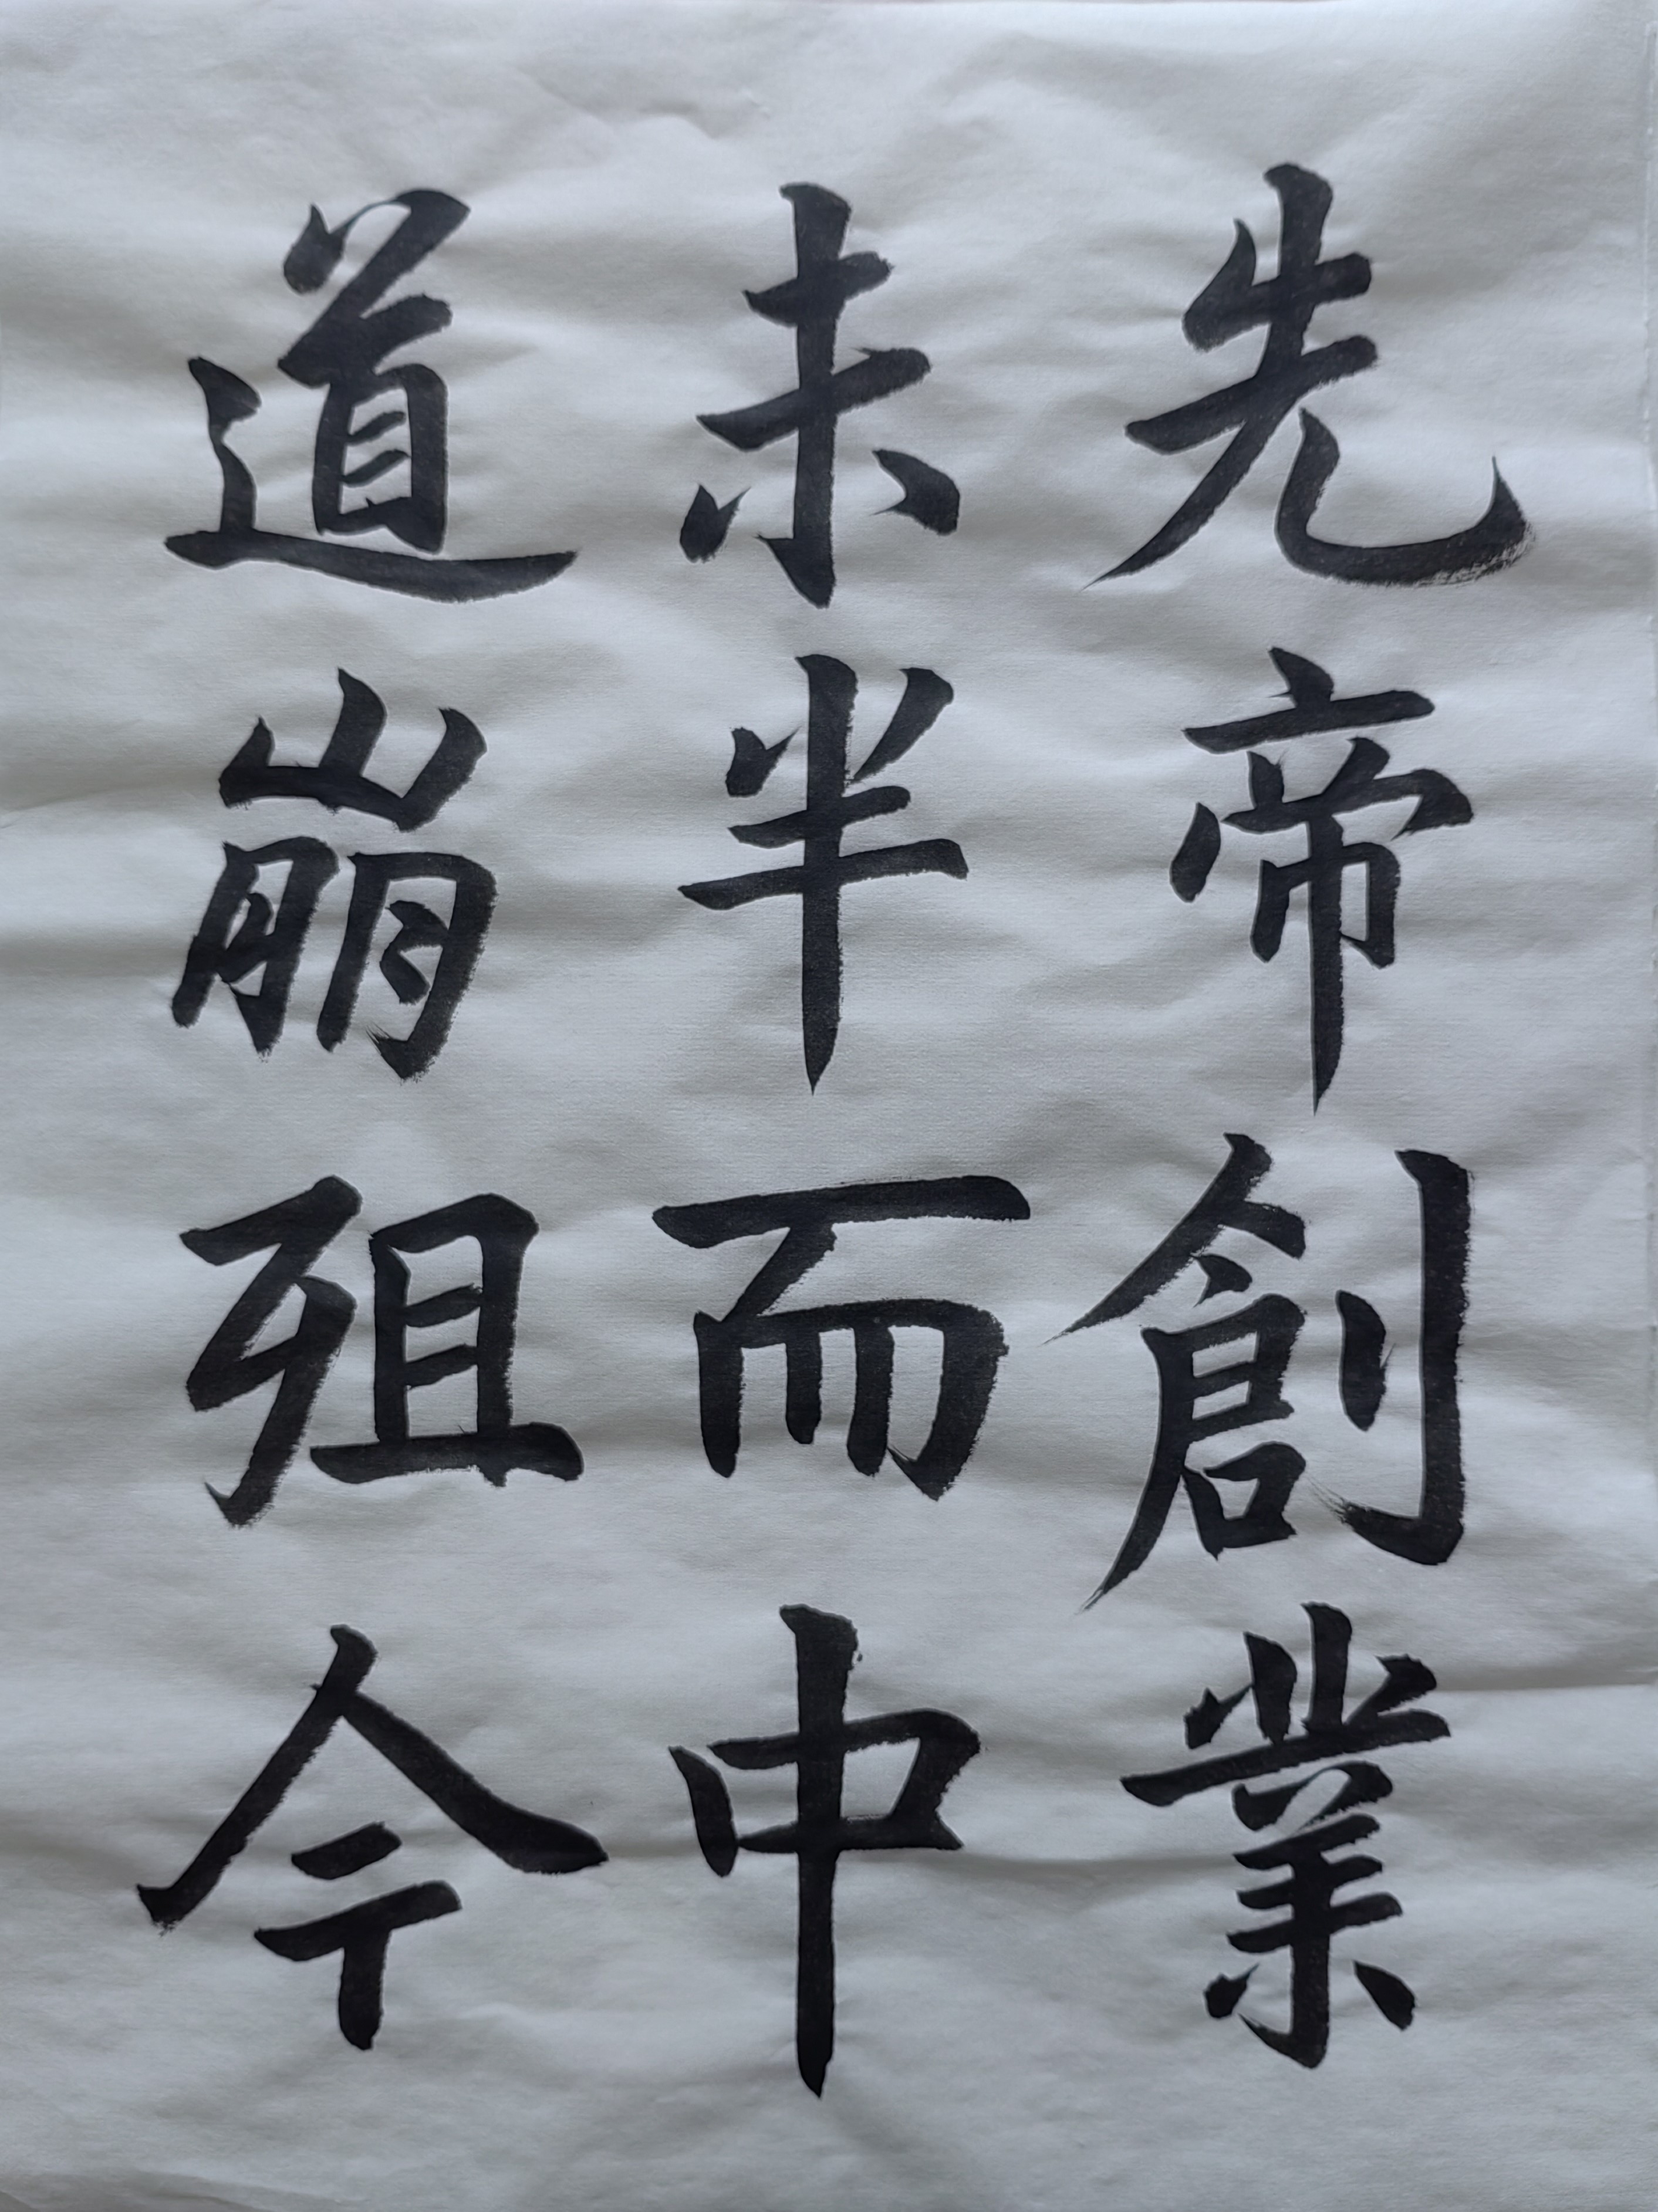 先帝創業
未半而中
道崩殂今